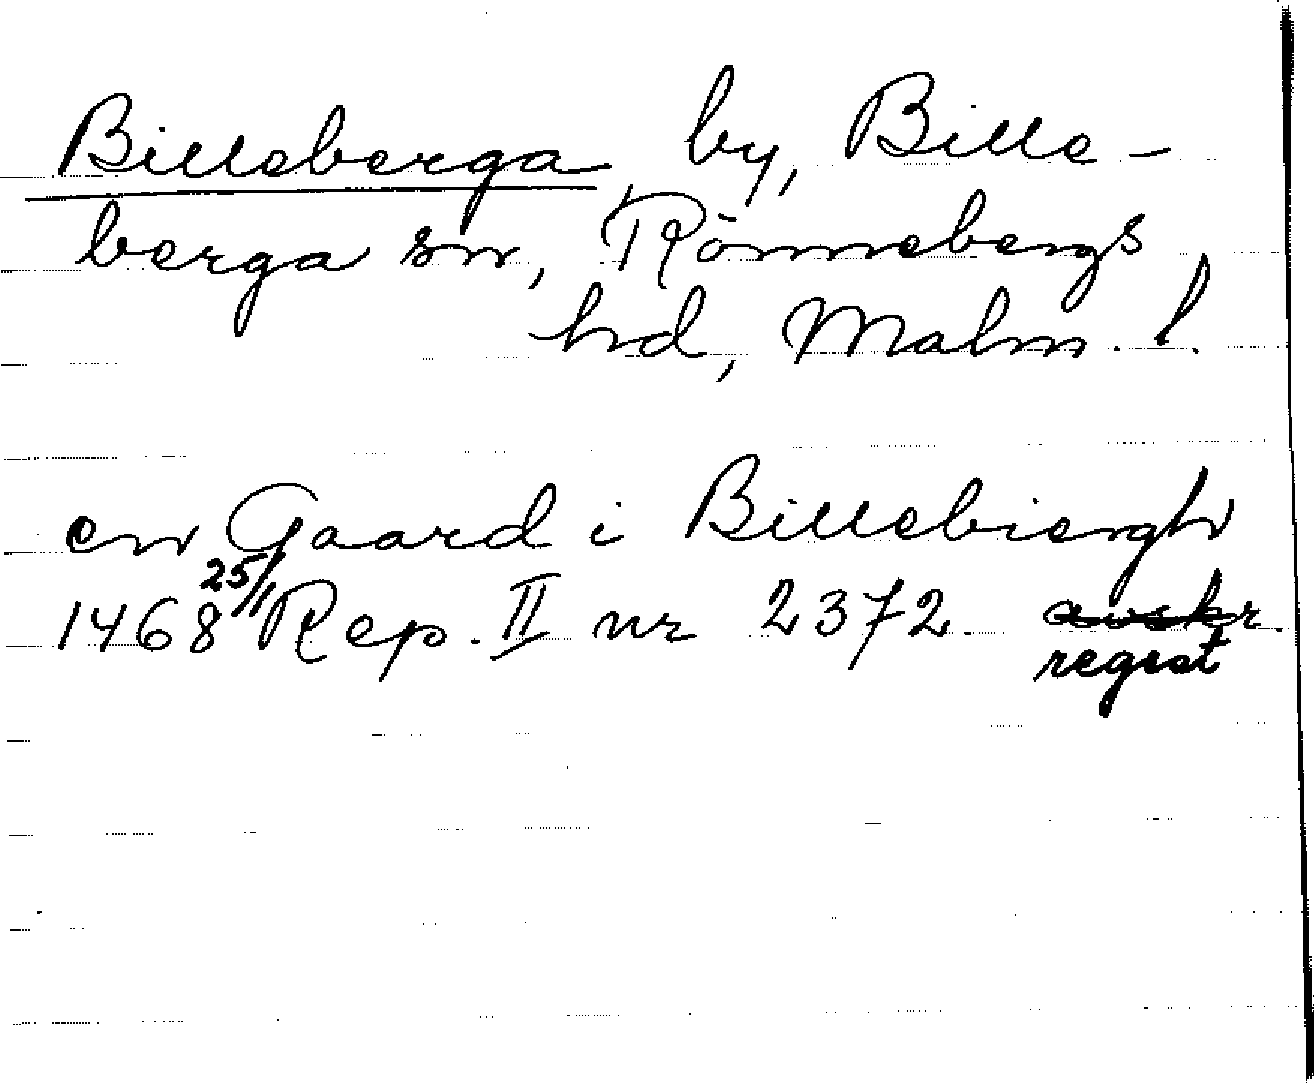 Billeberga by, Bille-
berga sn, Rönnebergs
hd, Malm. l.
en Gaard i Billebiergh
1468 25/1 Rep. II nr 2372 avskr.
regest